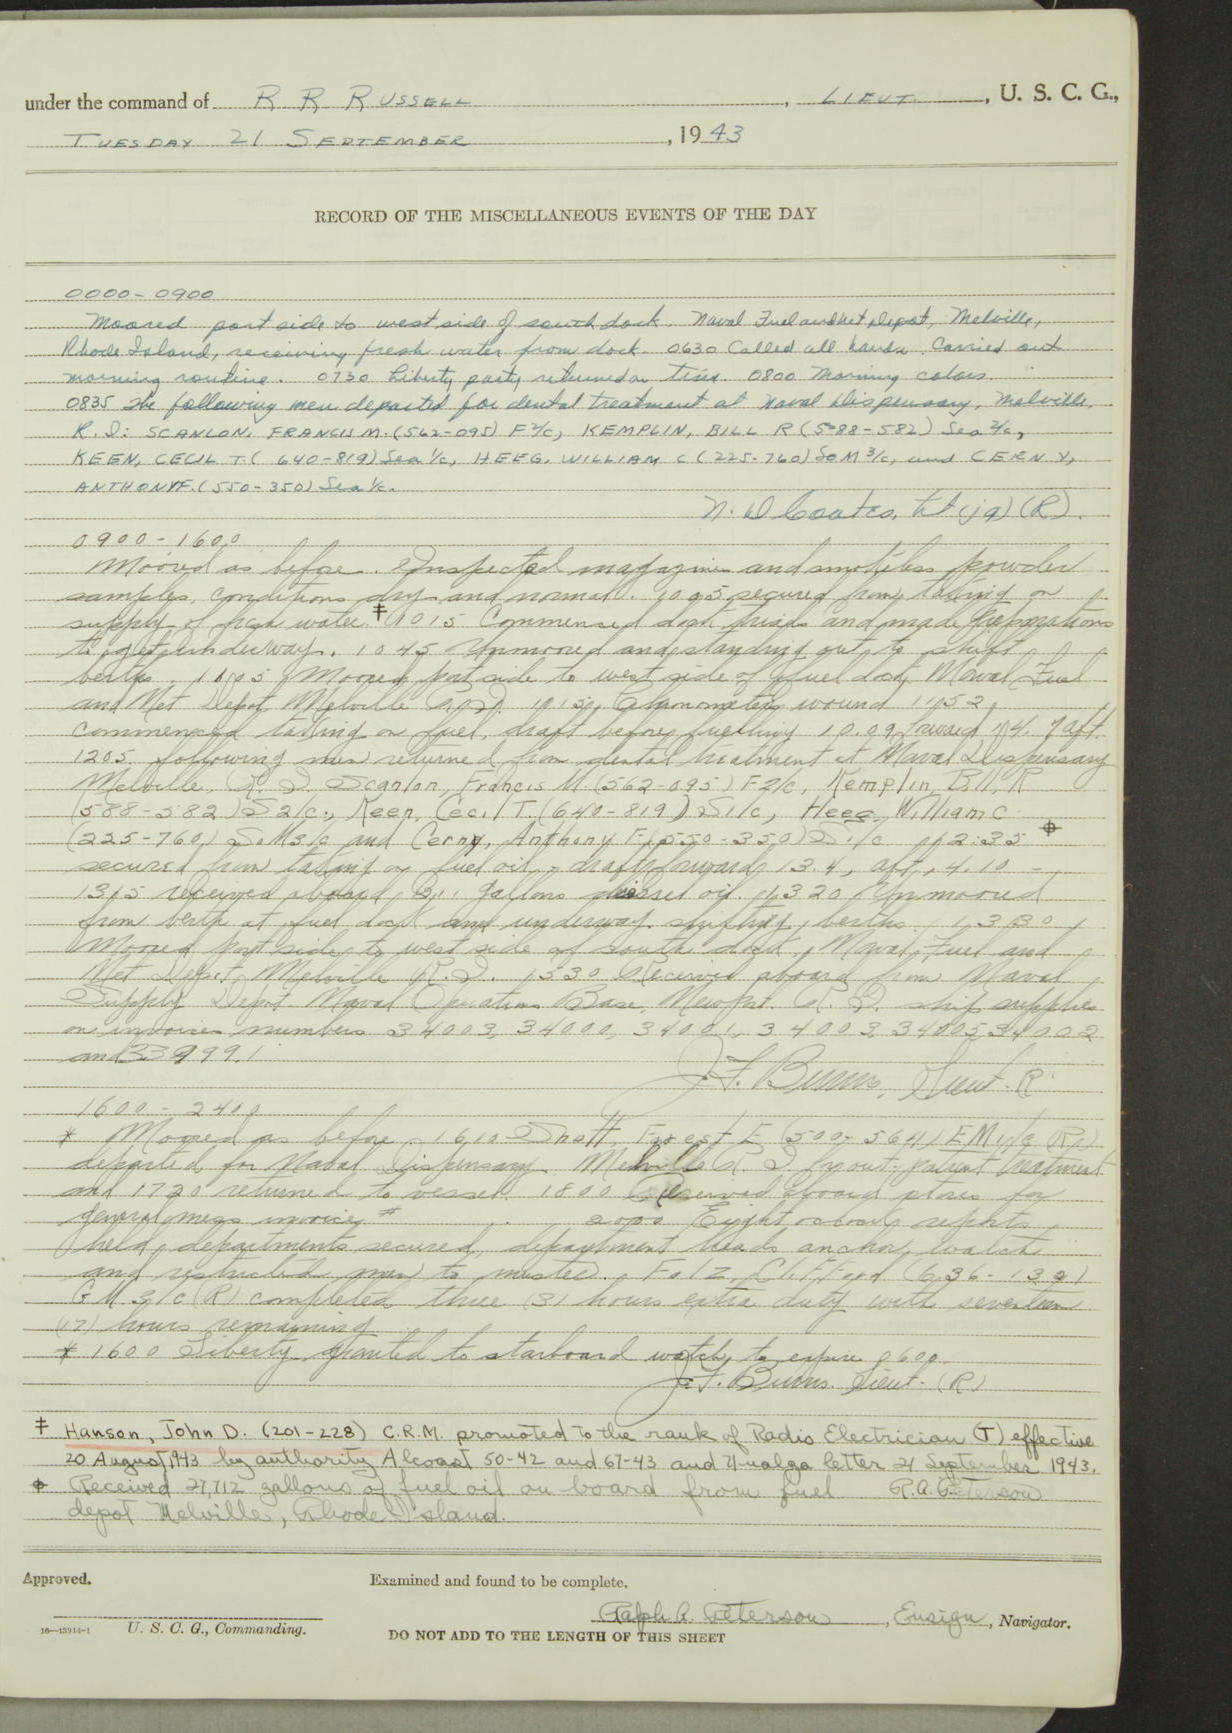 under the command of R. R. RUSSELL, LIEUT., U. S. C. G.,
TUESDAY 21 SEPTEMBER, 1943
RECORD OF THE MISCELLANEOUS EVENTS OF THE DAY
0000-0900
Moored port side to west side of south dock, Naval Fuel and Net Depot, Melville,
Rhode Island, receiving fresh water from dock. 0630 Called all hands. Carried out
morning routine. 0730 Liberty party returned on time. 0800 Morning colors.
0835 The following men departed for dental treatment at Naval Dispensary, Melville,
R.I: SCANLON, FRANCIS M. (562-095) F2/c, KEMPLIN, BILL R (588-582) Sea 2/c,
KEEN, CECIL T. (640-819) Sea 1/c, HEEG, WILLIAM C (225-760) SoM 3/c, and CERNY,
ANTHONY F. (550-350) Sea 1/c.
N. D Coates, Lt (jg) (R).
0900-1600
Moored as before. Inspected magazines and smokeless powder
samples, conditions dry and normal. 1005 secured from taking on
supply of fresh water. ‡ 1015 Commenced dock trials and made preparations
to get underway. 1045 Unmoored and standing out to shift
berths. 1105 Moored port side to west side of fuel dock, Naval Fuel
and Net Depot Melville R.I. Chronometers wound 1152
commenced taking on fuel, draft before fuelling 10.09 forward 14.7 aft.
1205 following men returned from dental treatment at Naval Dispensary
Melville, R.I. Scanlon, Francis M. (562-095) F2/c, Kemplin, Bill R
(588-582) S2/c., Keen, Cecil T. (640-819) S1/c, Heeg, William C
(225-760) SoM3/c and Cerny, Anthony F. (550-350) S1/c 12:35 ⌽
secured from taking on fuel oil, drafts forward 13.4, aft, 14.10 -
1315 received aboard gallons diesel oil. 1320 Unmoored
from berth at fuel dock and underway shifting berths. 1330
Moored port side to west side of south dock, Naval Fuel and
Net Depot, Melville R.I. 1530 Received aboard from Naval
Supply Depot Naval Operations Base, Newport R.I. ship supplies
on invoices numbers 34003, 34000, 34001, 34003, 34005, 34002
and 33999.
J. F. Burns, Lieut. R
1600-2400
* Moored as before. 1610 Shott, Forest E (500-564) EM1/c (R)
departed for Naval Dispensary, Melville R.I. for out-patient treatment
and 1720 returned to vessel. 1800 Received aboard stores for
general mess invoice # . 2000 Eight oclock reports
held, departments secured, department heads anchor watch
and restricted men to muster. Folz, Clifford (636-139)
GM3/c (R) completed three (3) hours extra duty with seventeen
(17) hours remaining
* 1600 Liberty granted to starboard watch, to expire 0600.
J.F. Burns. Lieut. (R)
‡ Hanson, John D. (201-228) C.R.M. promoted to the rank of Radio Electrician (T) effective
20 August, 1943 by authority Alcoast 50-42 and 67-43 and Unalga letter 21 September 1943.
⌽ Received 27,712 gallons of fuel oil on board from fuel R.A. Peterson
depot Melville, Rhode Island.
Approved.
Examined and found to be complete.
Ralph A. Peterson, Ensign, Navigator.
16—13914-1 U. S. C. G., Commanding.
DO NOT ADD TO THE LENGTH OF THIS SHEET